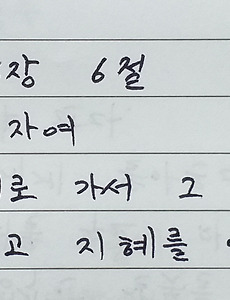 장 6절
자여
로 가서 그
고 지혜를